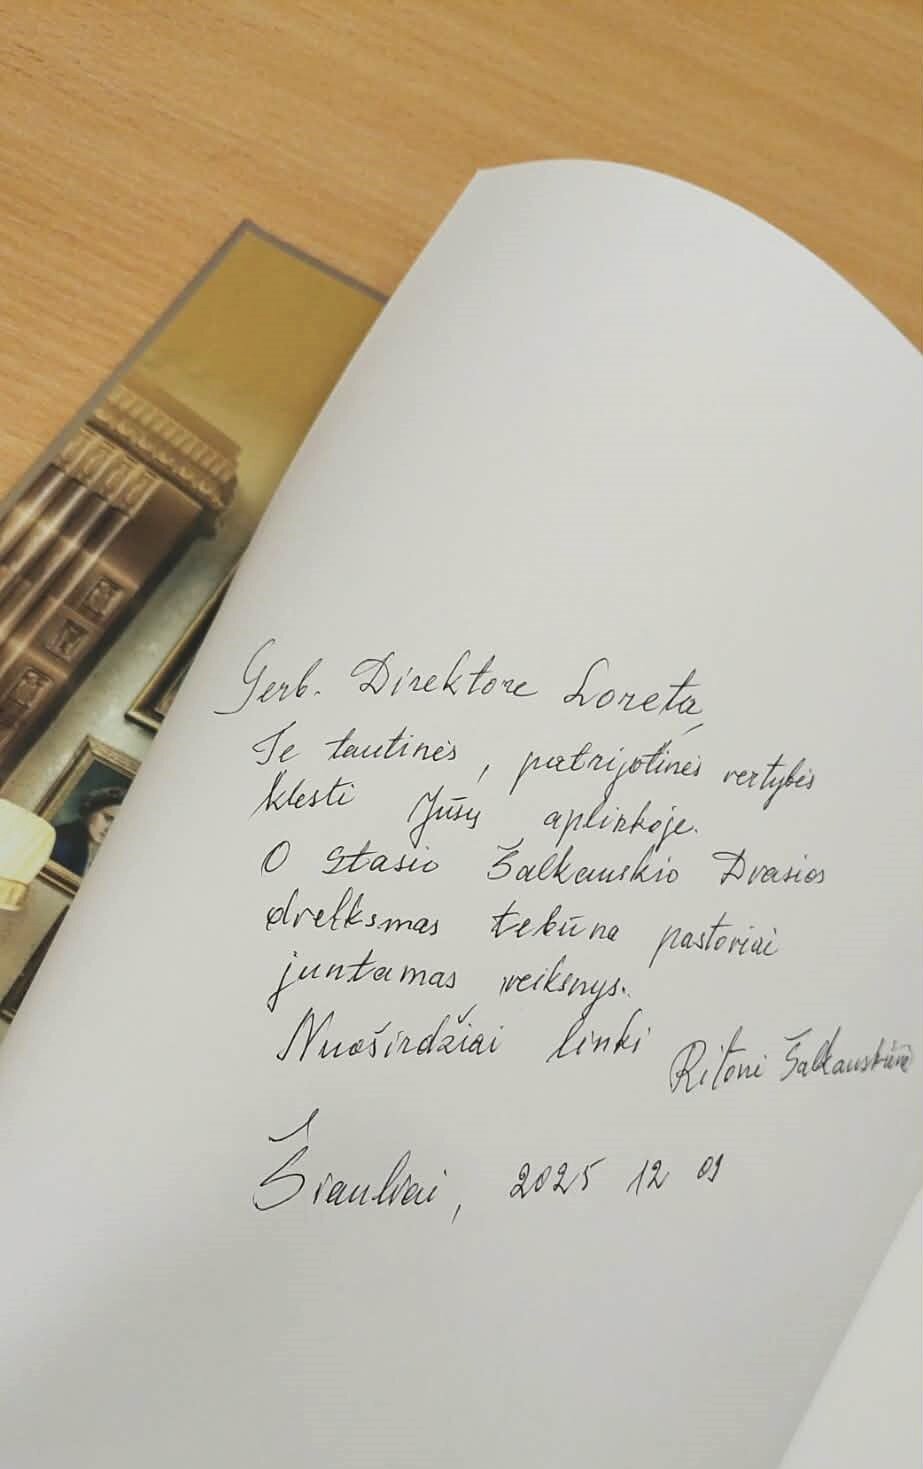 Gerb. Direktore Loreta,
Te tautinės, patrijotinės vertybės
klesti Jūsų aplinkoje.
O Stasio Šalkauskio Dvasios
dvelksmas tebūna pastoviai
juntamas veiksnys.
Nuoširdžiai linki
Šalkauskienė
Šiauliai, 2025 12 09